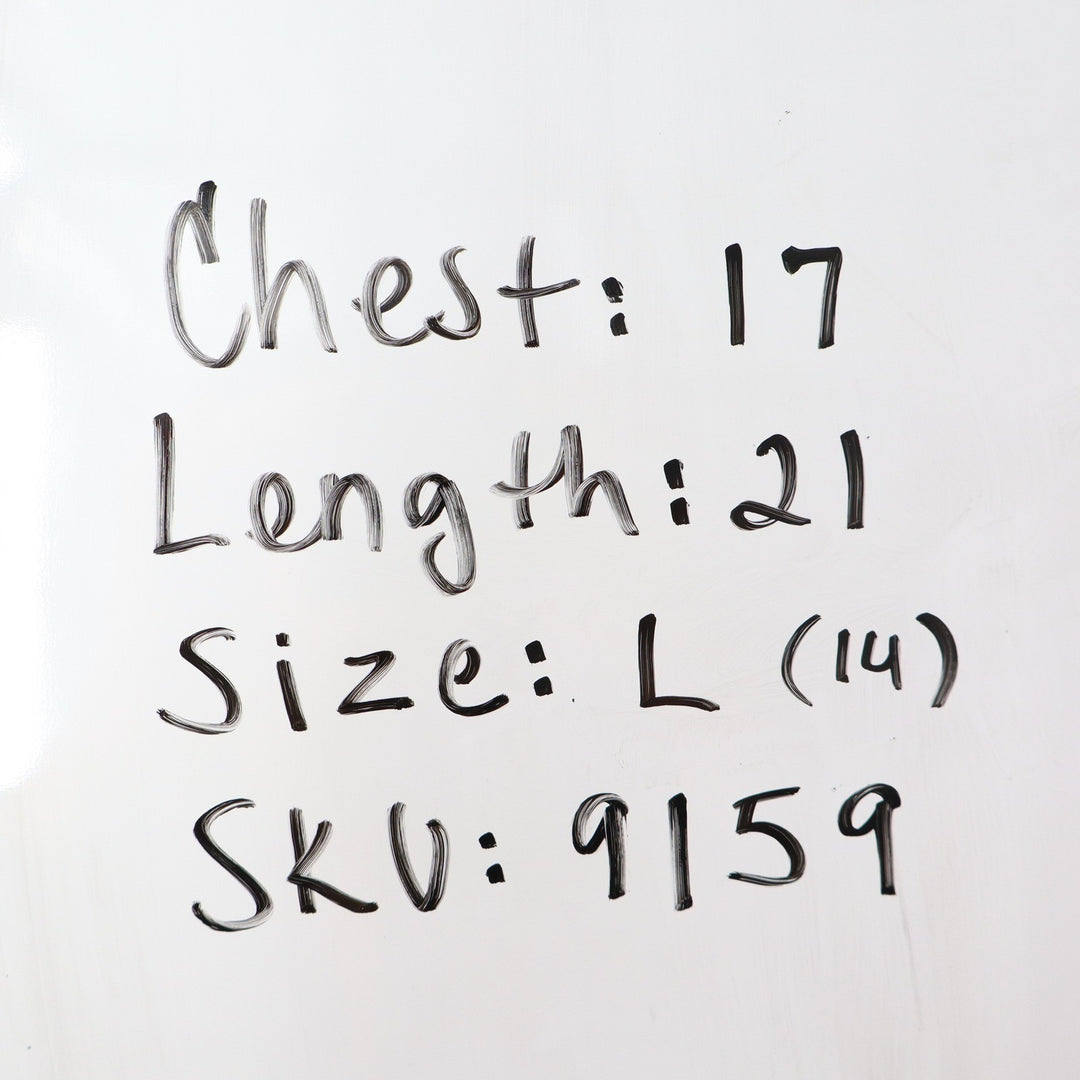 Chest: 17
Length: 21
Size: L (14)
SKU: 9159